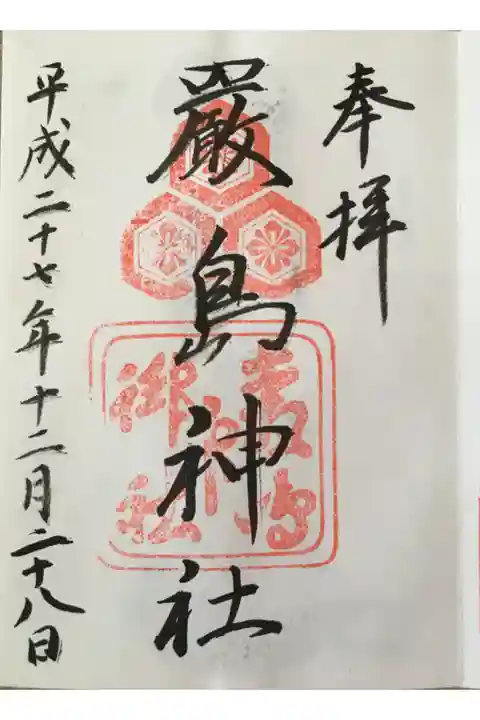 奉拝
嚴島神社
平成二十七年十二月二十八日